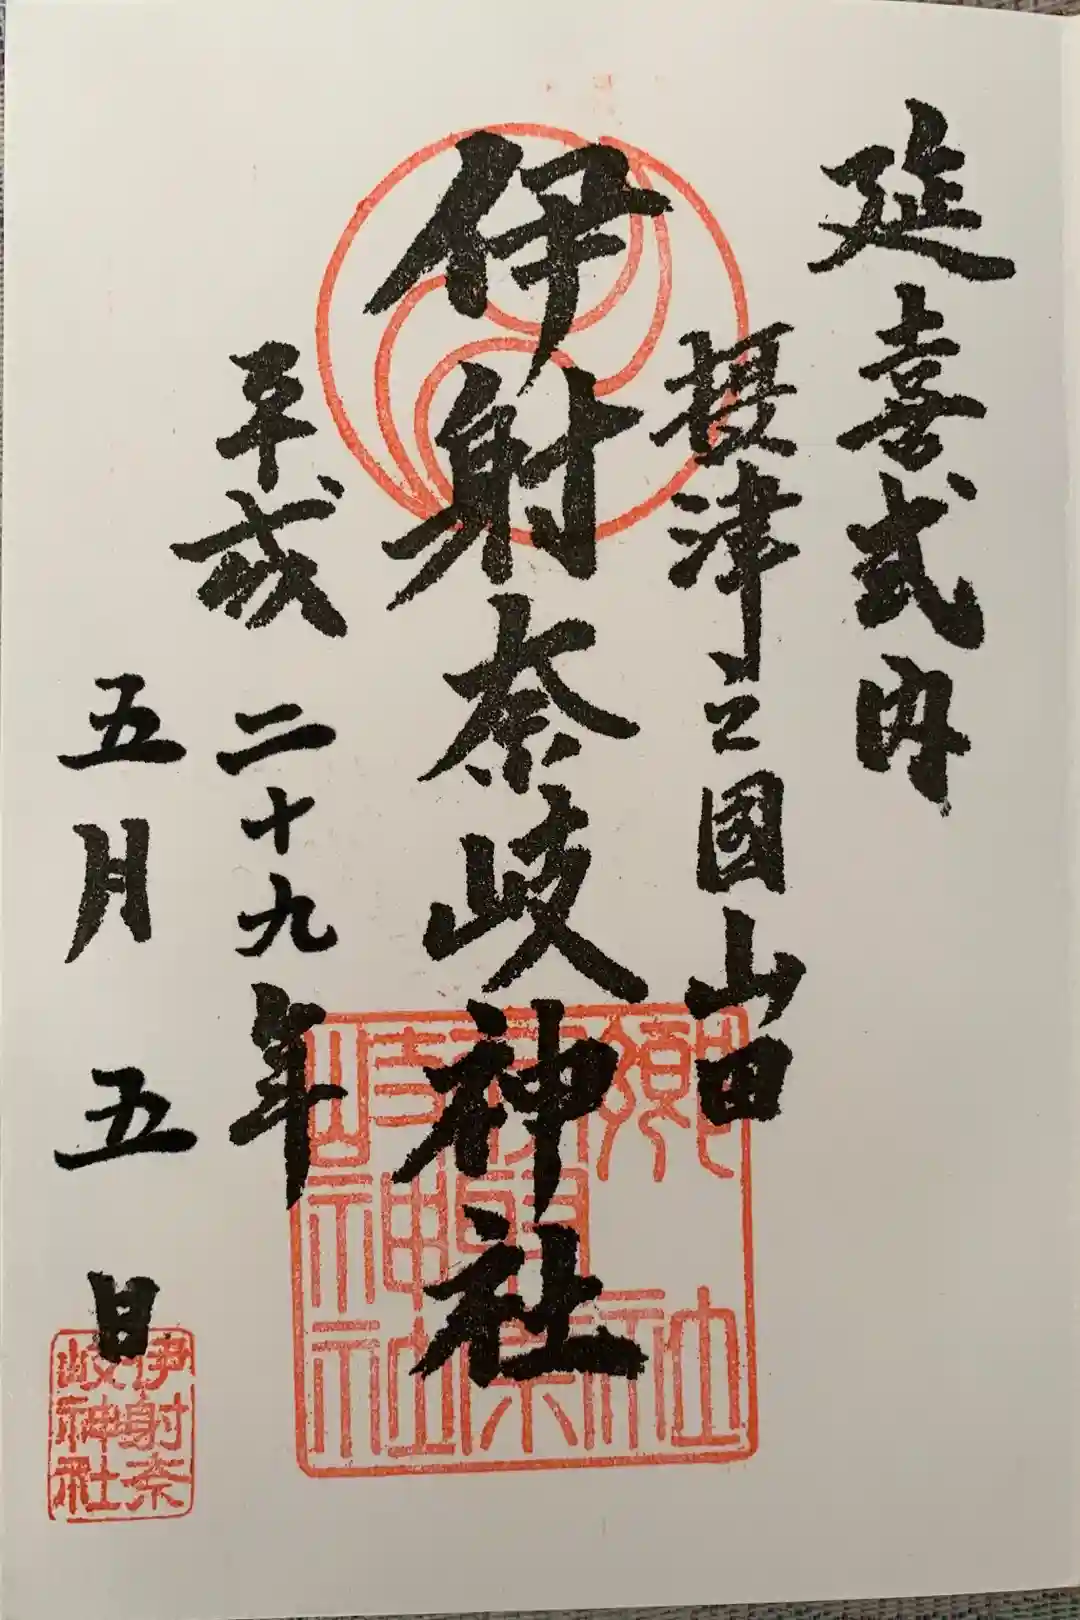 延喜式内
摂津之國山田
伊射奈岐神社
平成二十九年
五月五日
郷社
伊射奈
岐神社
伊射奈
岐神社